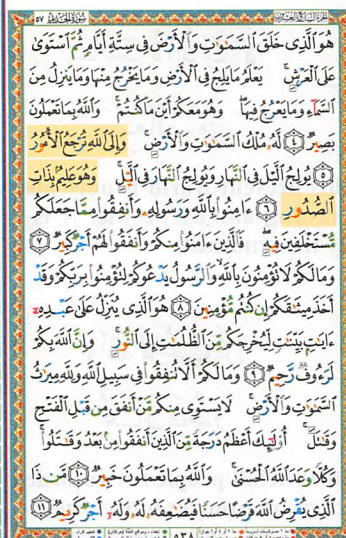 ٥٧ سُورَةُ الحَدِيدِ الجُزْءُ السَّابِعُ وَالعِشْرُونَ
هُوَ ٱلَّذِى خَلَقَ ٱلسَّمَـٰوَٰتِ وَٱلْأَرْضَ فِى سِتَّةِ أَيَّامٍ ثُمَّ ٱسْتَوَىٰ
عَلَى ٱلْعَرْشِ ۚ يَعْلَمُ مَا يَلِجُ فِى ٱلْأَرْضِ وَمَا يَخْرُجُ مِنْهَا وَمَا يَنزِلُ مِنَ
ٱلسَّمَآءِ وَمَا يَعْرُجُ فِيهَا ۖ وَهُوَ مَعَكُمْ أَيْنَ مَا كُنتُمْ ۚ وَٱللَّهُ بِمَا تَعْمَلُونَ
بَصِيرٌ ٤ لَّهُۥ مُلْكُ ٱلسَّمَـٰوَٰتِ وَٱلْأَرْضِ ۚ وَإِلَى ٱللَّهِ تُرْجَعُ ٱلْأُمُورُ
٥ يُولِجُ ٱلَّيْلَ فِى ٱلنَّهَارِ وَيُولِجُ ٱلنَّهَارَ فِى ٱلَّيْلِ ۚ وَهُوَ عَلِيمٌۢ بِذَاتِ
ٱلصُّدُورِ ٦ ءَامِنُوا۟ بِٱللَّهِ وَرَسُولِهِۦ وَأَنفِقُوا۟ مِمَّا جَعَلَكُم
مُّسْتَخْلَفِينَ فِيهِ ۖ فَٱلَّذِينَ ءَامَنُوا۟ مِنكُمْ وَأَنفَقُوا۟ لَهُمْ أَجْرٌ كَبِيرٌ ٧
وَمَا لَكُمْ لَا تُؤْمِنُونَ بِٱللَّهِ ۙ وَٱلرَّسُولُ يَدْعُوكُمْ لِتُؤْمِنُوا۟ بِرَبِّكُمْ وَقَدْ
أَخَذَ مِيثَـٰقَكُمْ إِن كُنتُم مُّؤْمِنِينَ ٨ هُوَ ٱلَّذِى يُنَزِّلُ عَلَىٰ عَبْدِهِۦٓ
ءَايَـٰتٍۭ بَيِّنَـٰتٍ لِّيُخْرِجَكُم مِّنَ ٱلظُّلُمَـٰتِ إِلَى ٱلنُّورِ ۚ وَإِنَّ ٱللَّهَ بِكُمْ
لَرَءُوفٌ رَّحِيمٌ ٩ وَمَا لَكُمْ أَلَّا تُنفِقُوا۟ فِى سَبِيلِ ٱللَّهِ وَلِلَّهِ مِيرَٰثُ
ٱلسَّمَـٰوَٰتِ وَٱلْأَرْضِ ۚ لَا يَسْتَوِى مِنكُم مَّنْ أَنفَقَ مِن قَبْلِ ٱلْفَتْحِ
وَقَـٰتَلَ ۚ أُو۟لَـٰٓئِكَ أَعْظَمُ دَرَجَةً مِّنَ ٱلَّذِينَ أَنفَقُوا۟ مِنۢ بَعْدُ وَقَـٰتَلُوا۟ ۚ
وَكُلًّا وَعَدَ ٱللَّهُ ٱلْحُسْنَىٰ ۚ وَٱللَّهُ بِمَا تَعْمَلُونَ خَبِيرٌ ١٠ مَّن ذَا
ٱلَّذِى يُقْرِضُ ٱللَّهَ قَرْضًا حَسَنًا فَيُضَـٰعِفَهُۥ لَهُۥ وَلَهُۥٓ أَجْرٌ كَرِيمٌ ١١
٥٣٨